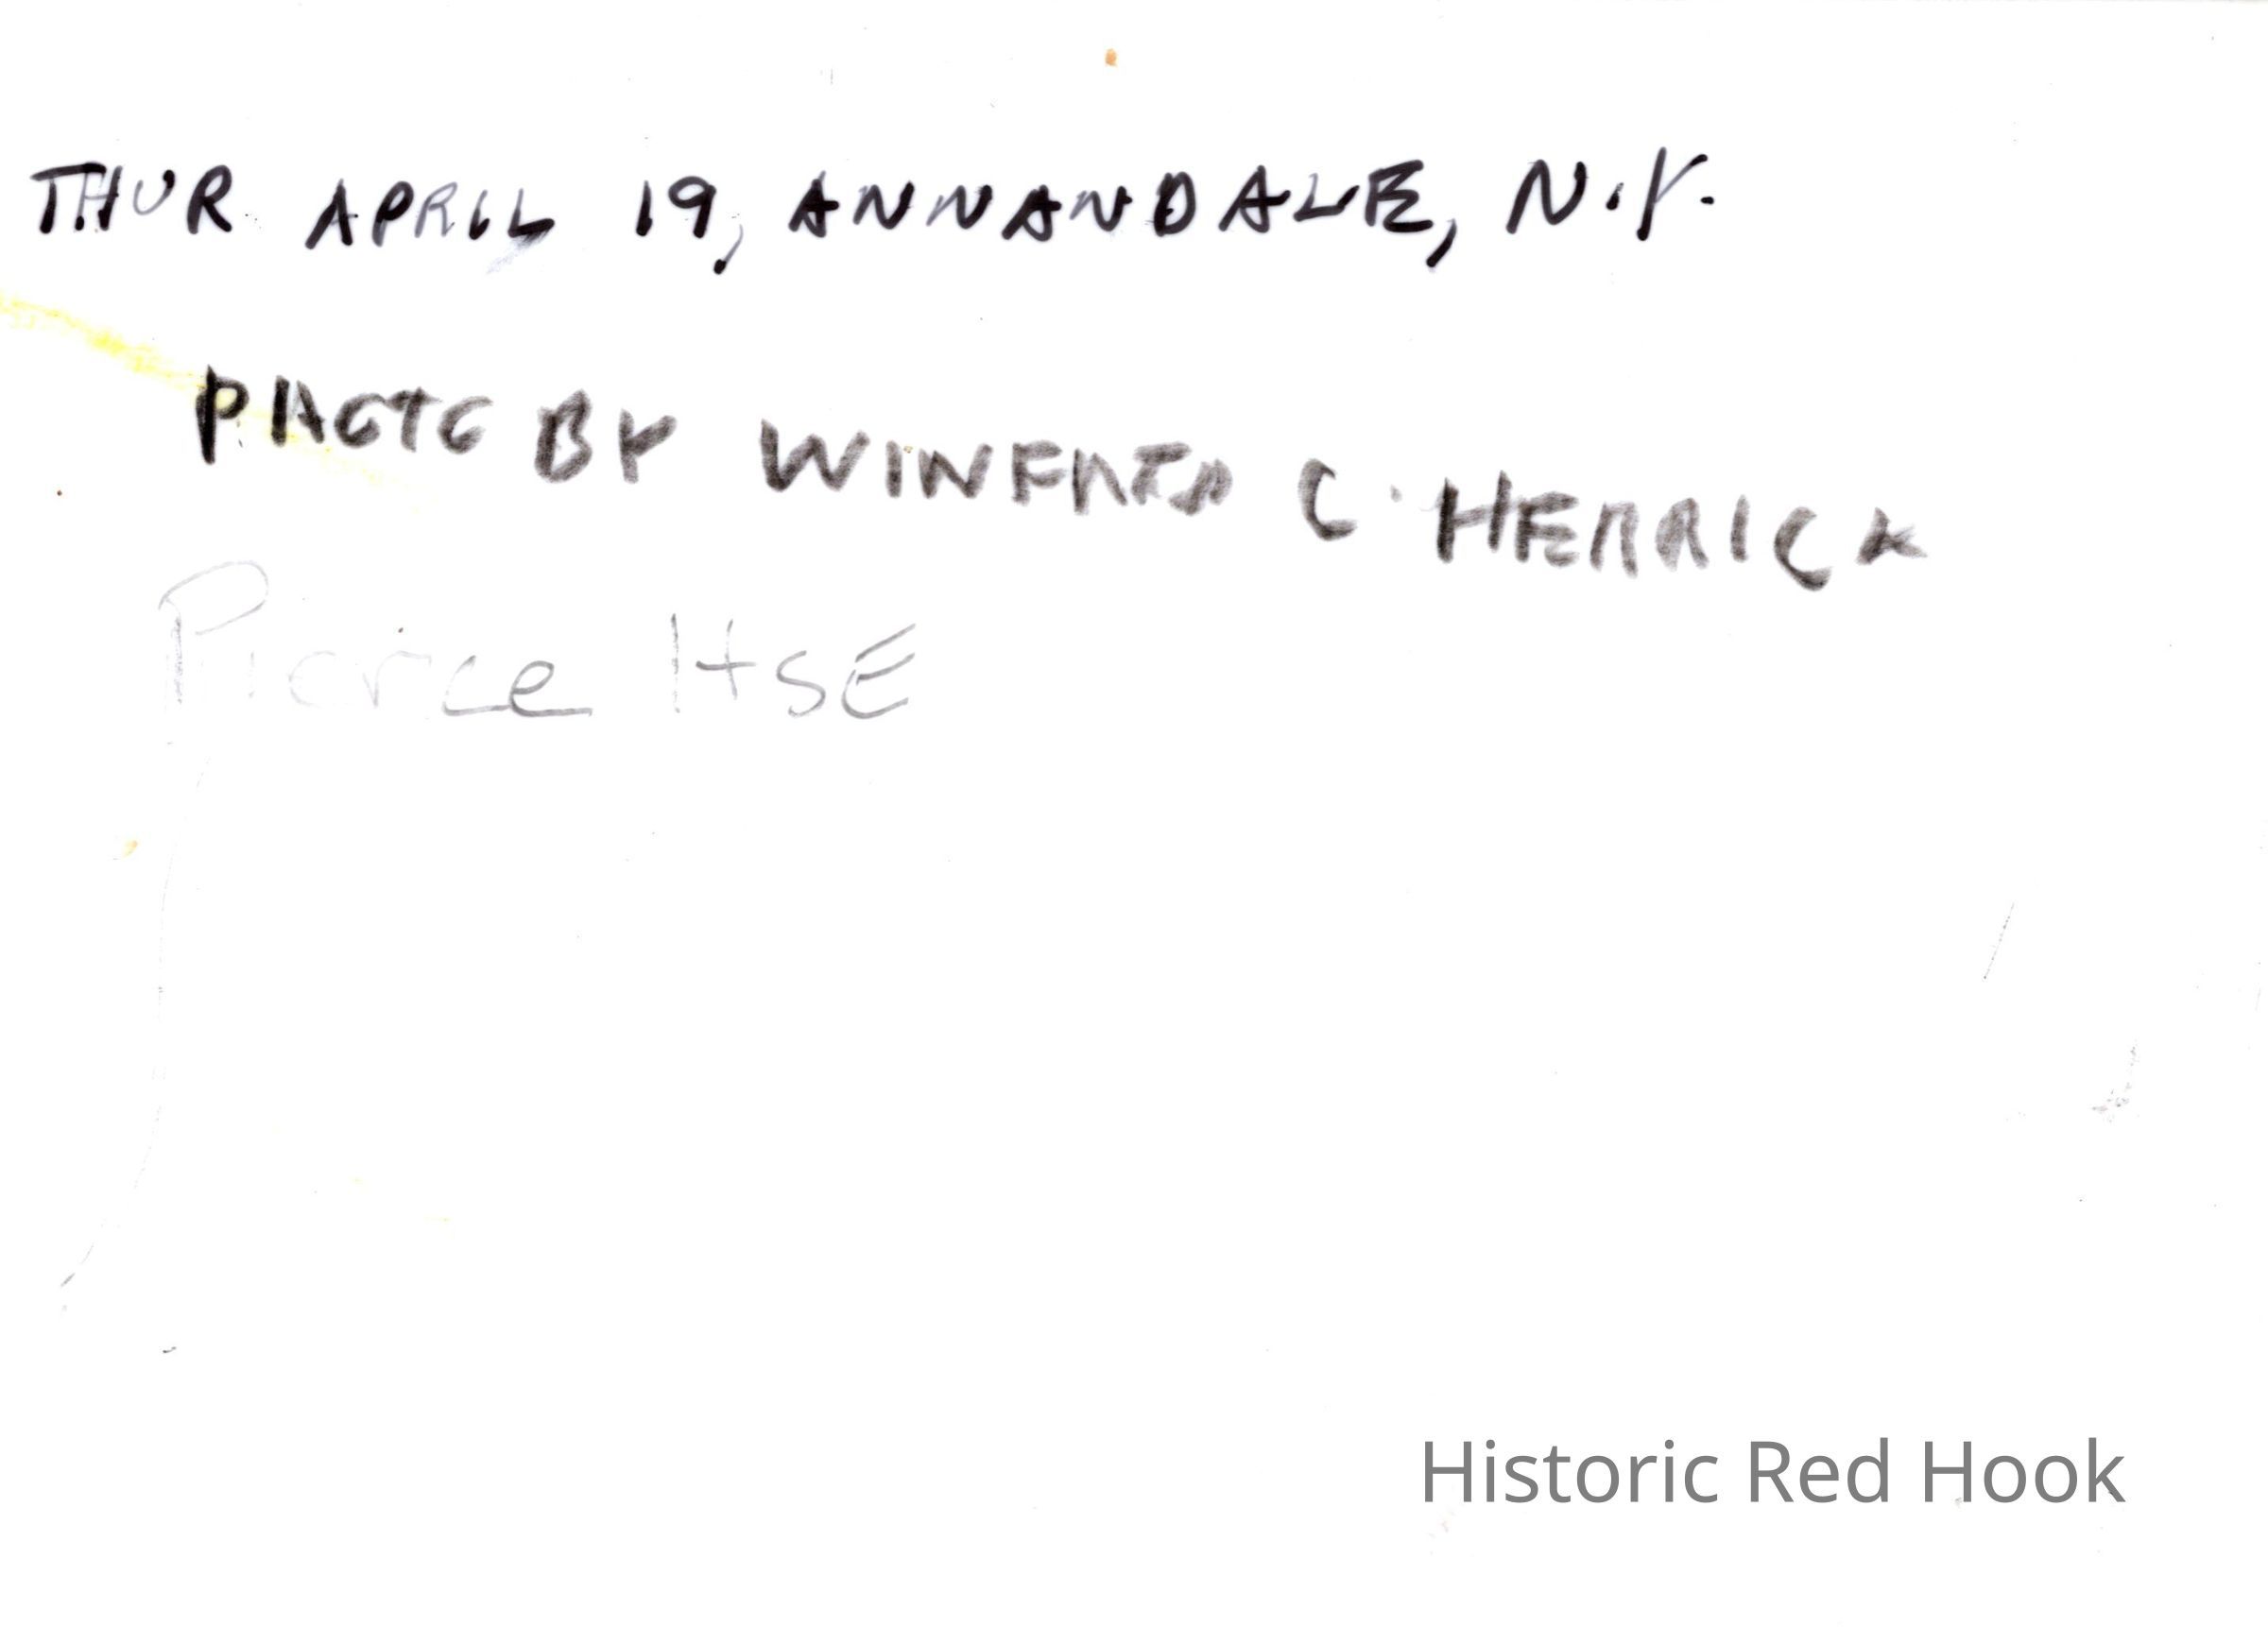 THUR APRIL 19, ANNANDALE, N.Y.
PHOTO BY WINFRED C. HERRICK
Pierce HSE
Historic Red Hook